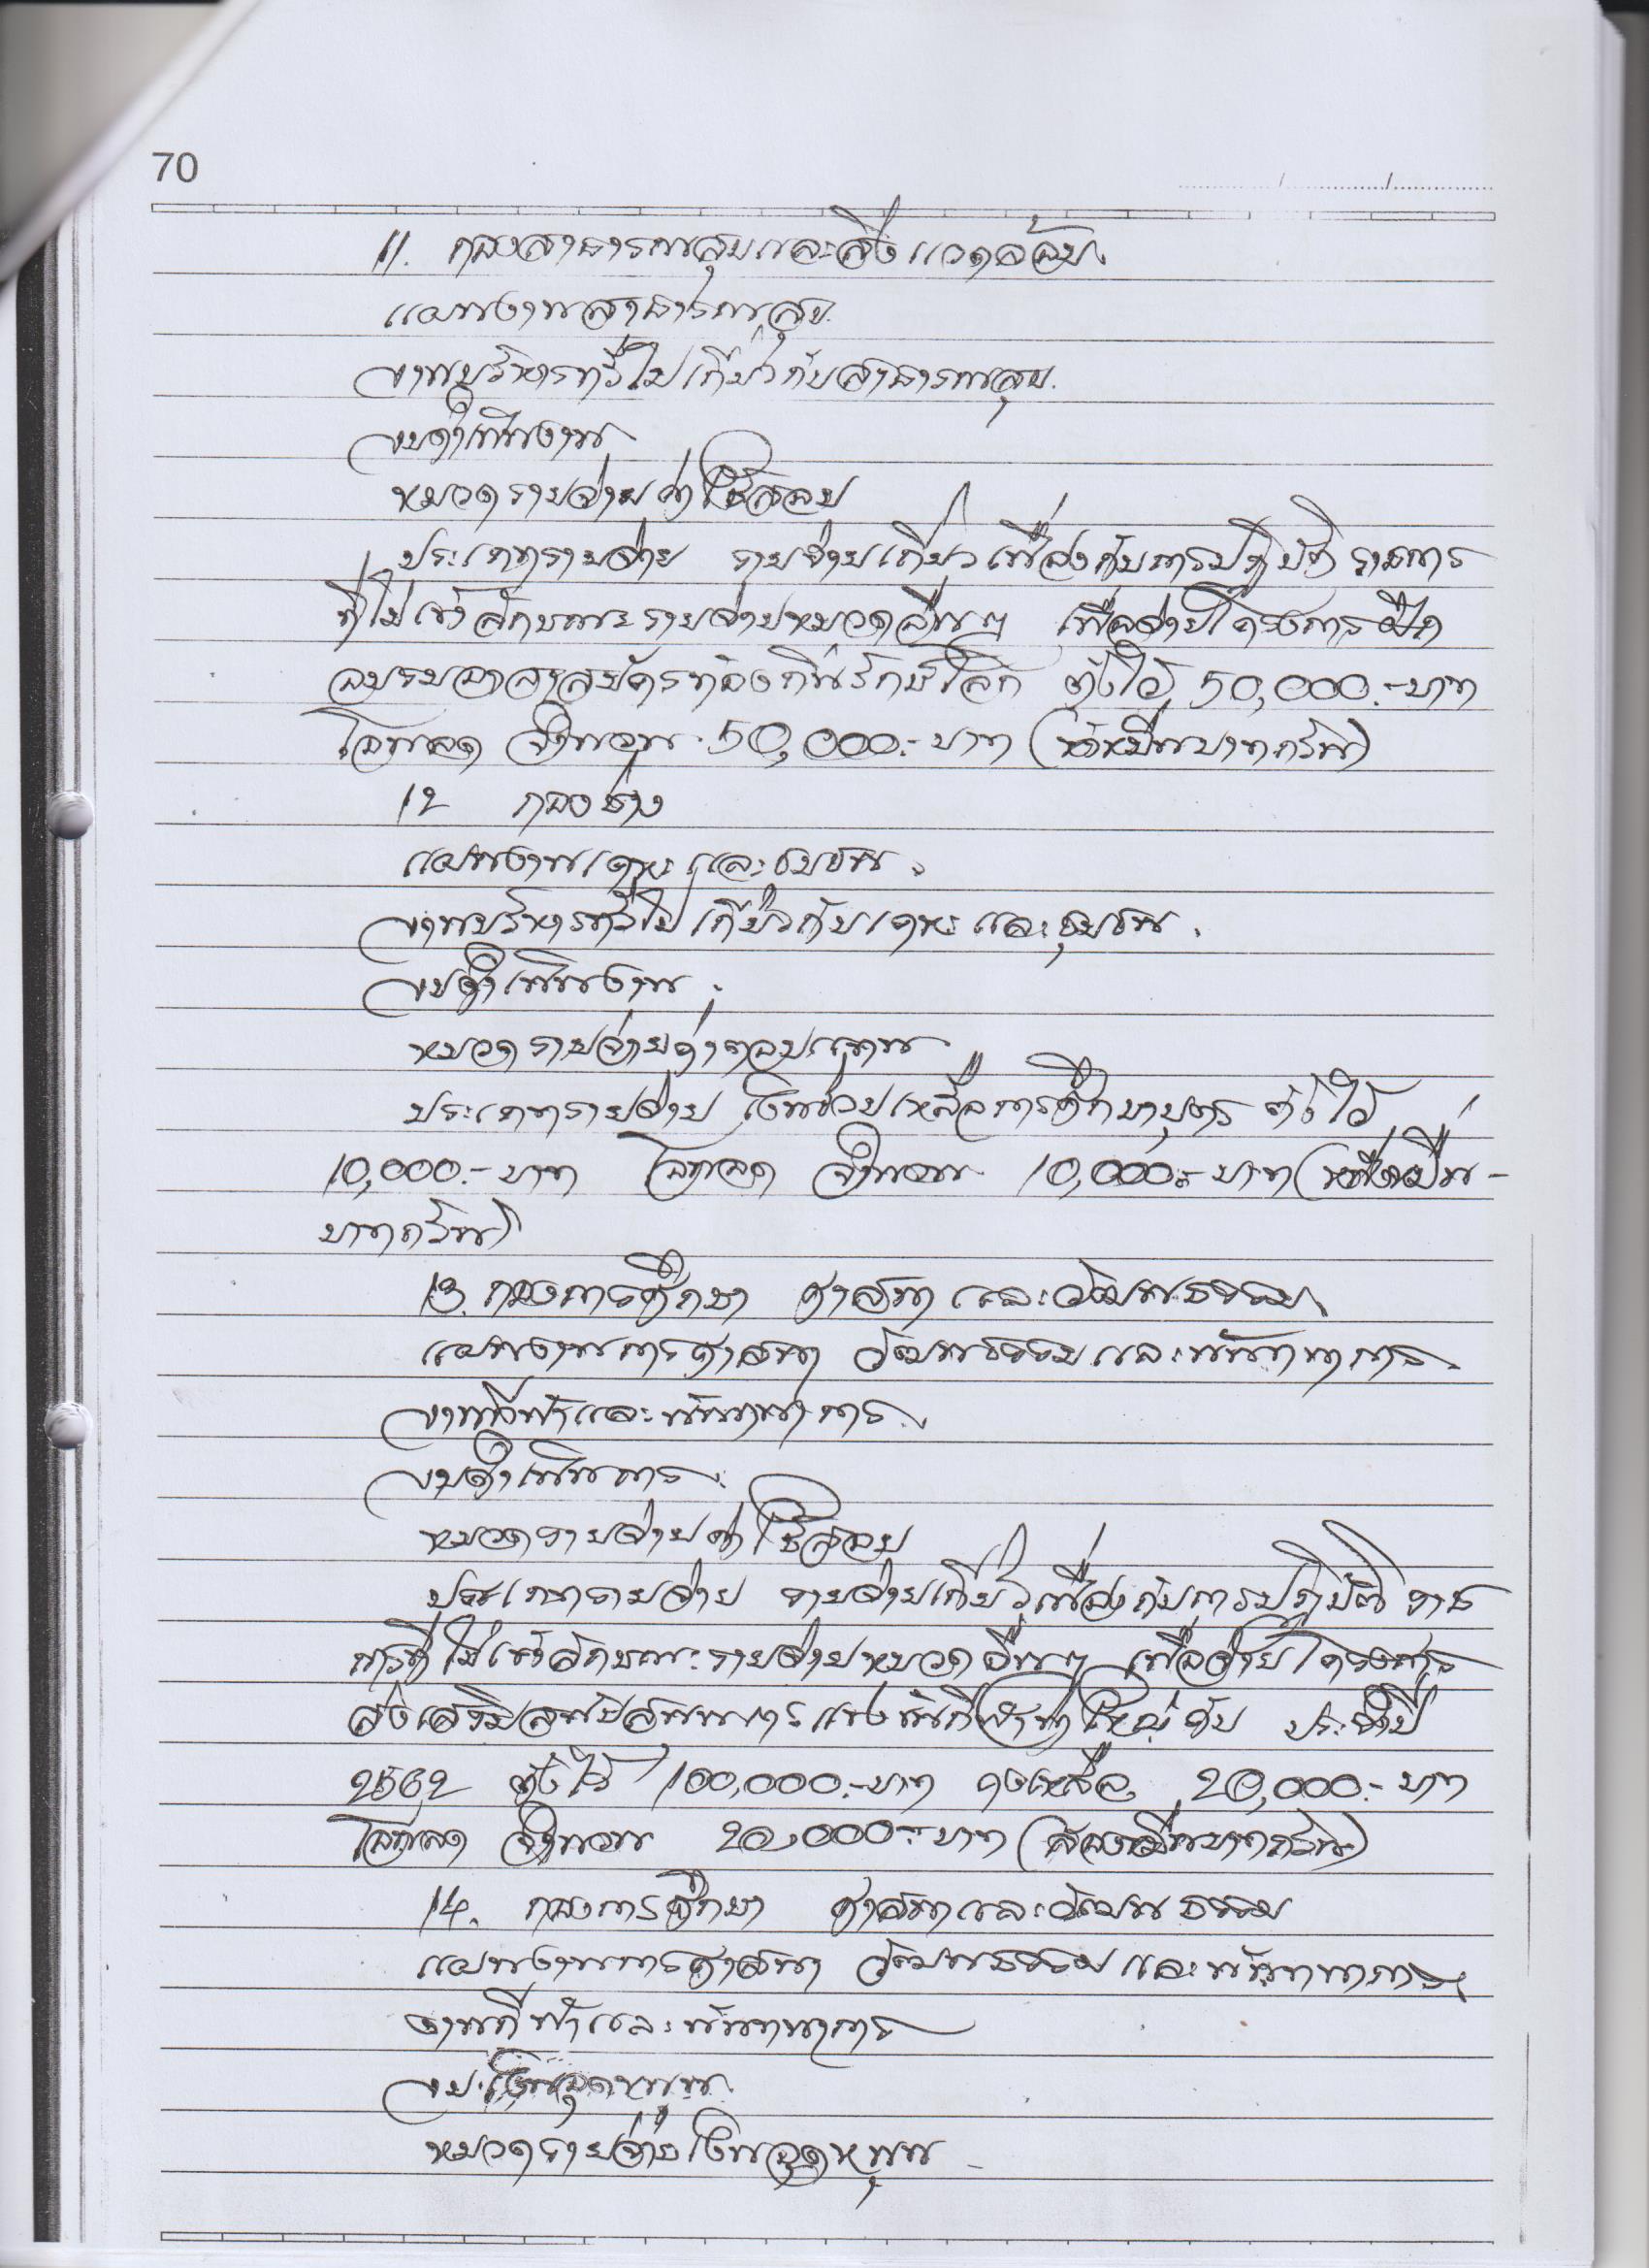 70
11. กองสาธารณสุขและสิ่งแวดล้อม
แผนงานสาธารณสุข
งานบริหารทั่วไปเกี่ยวกับสาธารณสุข
งบดำเนินงาน
หมวดรายจ่ายค่าใช้สอย
ประเภทรายจ่าย รายจ่ายเกี่ยวเนื่องกับการปฏิบัติราชการ
ที่ไม่เข้าลักษณะรายจ่ายหมวดอื่นๆ เพื่อจ่ายโครงการฝึก
อบรมอาสาสมัครท้องถิ่นรักษ์โลก ตั้งไว้ 50,000.-บาท
โอนลด จำนวน 50,000.-บาท (ห้าหมื่นบาทถ้วน)
12 กองช่าง
แผนงานเคหะและชุมชน
งานบริหารทั่วไปเกี่ยวกับเคหะและชุมชน
งบดำเนินงาน
หมวดรายจ่ายค่าตอบแทน
ประเภทรายจ่าย เงินช่วยเหลือการศึกษาบุตร ตั้งไว้
10,000.-บาท โอนลด จำนวน 10,000.-บาท (หนึ่งหมื่น-
บาทถ้วน)
13. กองการศึกษา ศาสนาและวัฒนธรรม
แผนงานการศาสนา วัฒนธรรมและนันทนาการ
งานกีฬาและนันทนาการ
งบดำเนินการ
หมวดรายจ่ายค่าใช้สอย
ประเภทรายจ่าย รายจ่ายเกี่ยวเนื่องกับการปฏิบัติราช
การที่ไม่เข้าลักษณะรายจ่ายหมวดอื่นๆ เพื่อจ่ายโครงการ
ส่งเสริมสนับสนุนการแข่งขันกีฬา ประจำปี
2562 ตั้งไว้ 100,000.-บาท คงเหลือ 20,000.-บาท
โอนลด จำนวน 20,000.-บาท (สองหมื่นบาทถ้วน)
14. กองการศึกษา ศาสนาและวัฒนธรรม
แผนงานการศาสนา วัฒนธรรมและนันทนาการ
งานกีฬาและนันทนาการ
งบเงินอุดหนุน
หมวดรายจ่ายเงินอุดหนุน